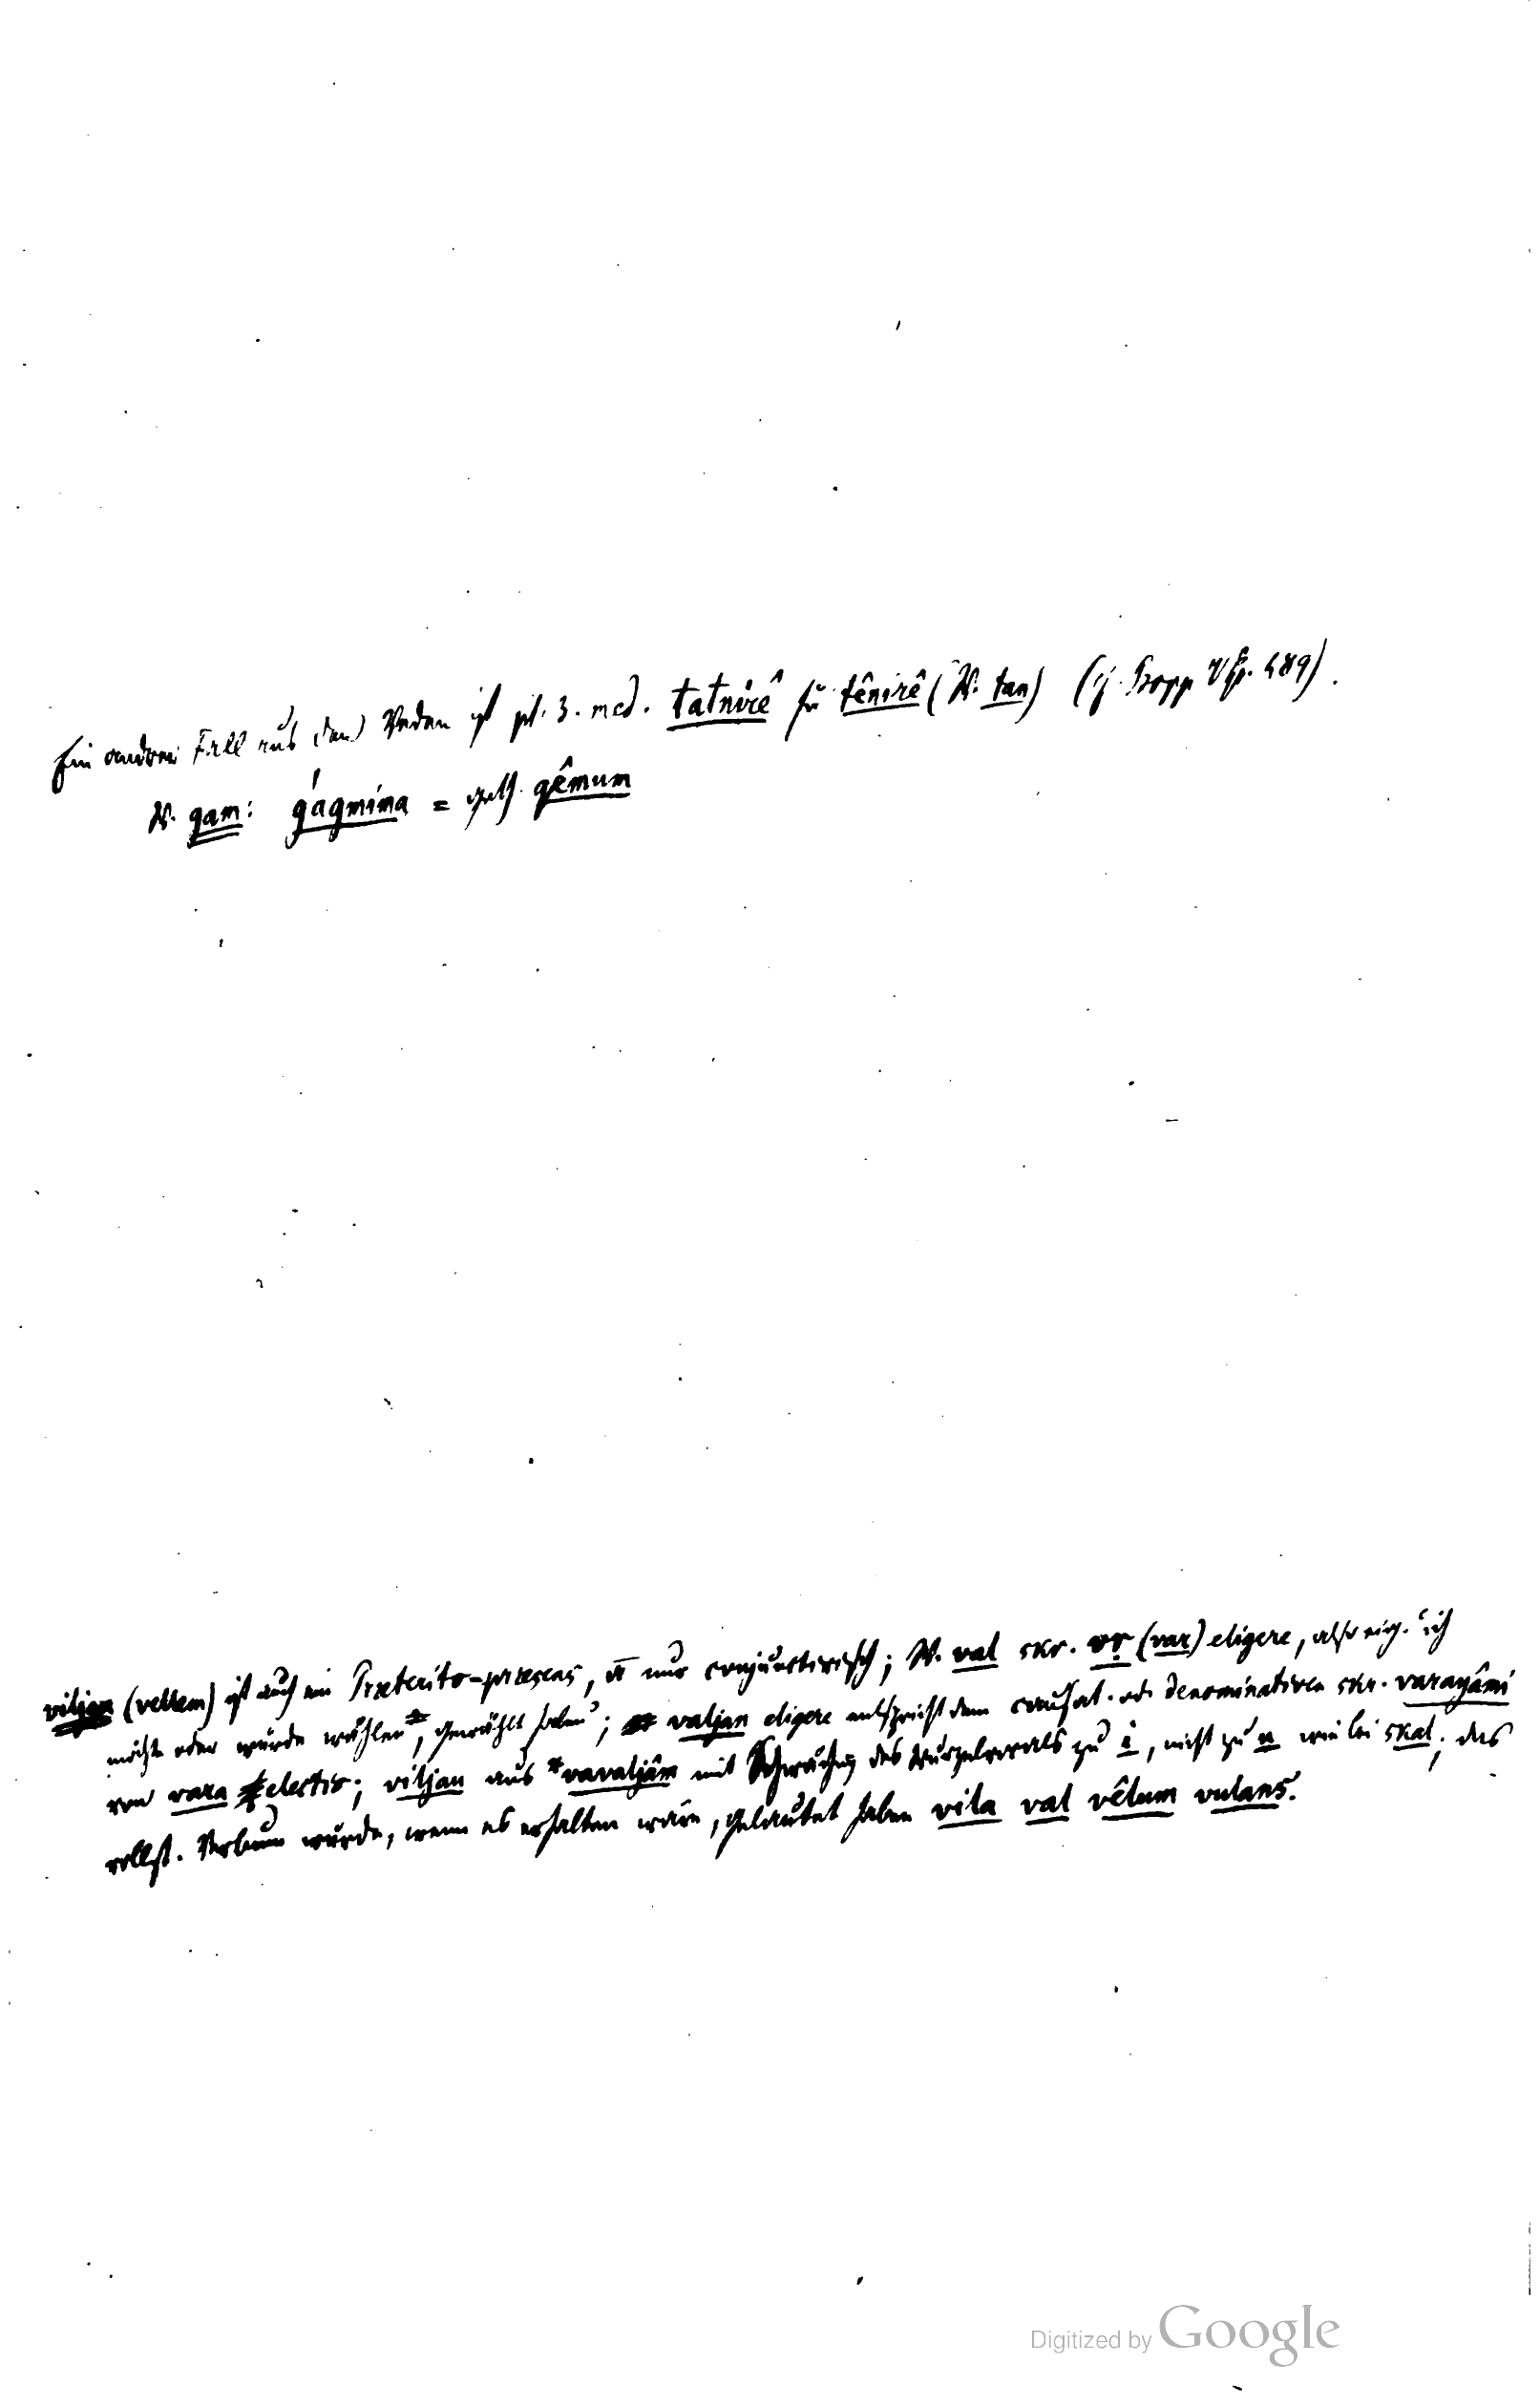 Ein anderer Fall aus den Veden ist pl. 3. med. tatnirê für tênirê (W. tan) (cf. Bopp Vgr. 489).
W. gam: ǵagmima = goth. qêmum
viljan (vellem) ist auch ein Praeterito-praesens, a nur conjunctivisch; W. val skr. vṛ (var) eligere, also eig. 'ich
möchte oder würde wählen, gewählt haben'; valjan eligere entspricht dem causat. od. denominativen skr. varayâmi
von vara electio; viljan aus *vavaljâm mit Schwächung des Wurzelvocals zu i, nicht zu u wie bei skal; das
vollst. Verbum würde, wenn es erhalten wäre, gelautet haben vila val vêlum vulans.
Digitized by Google